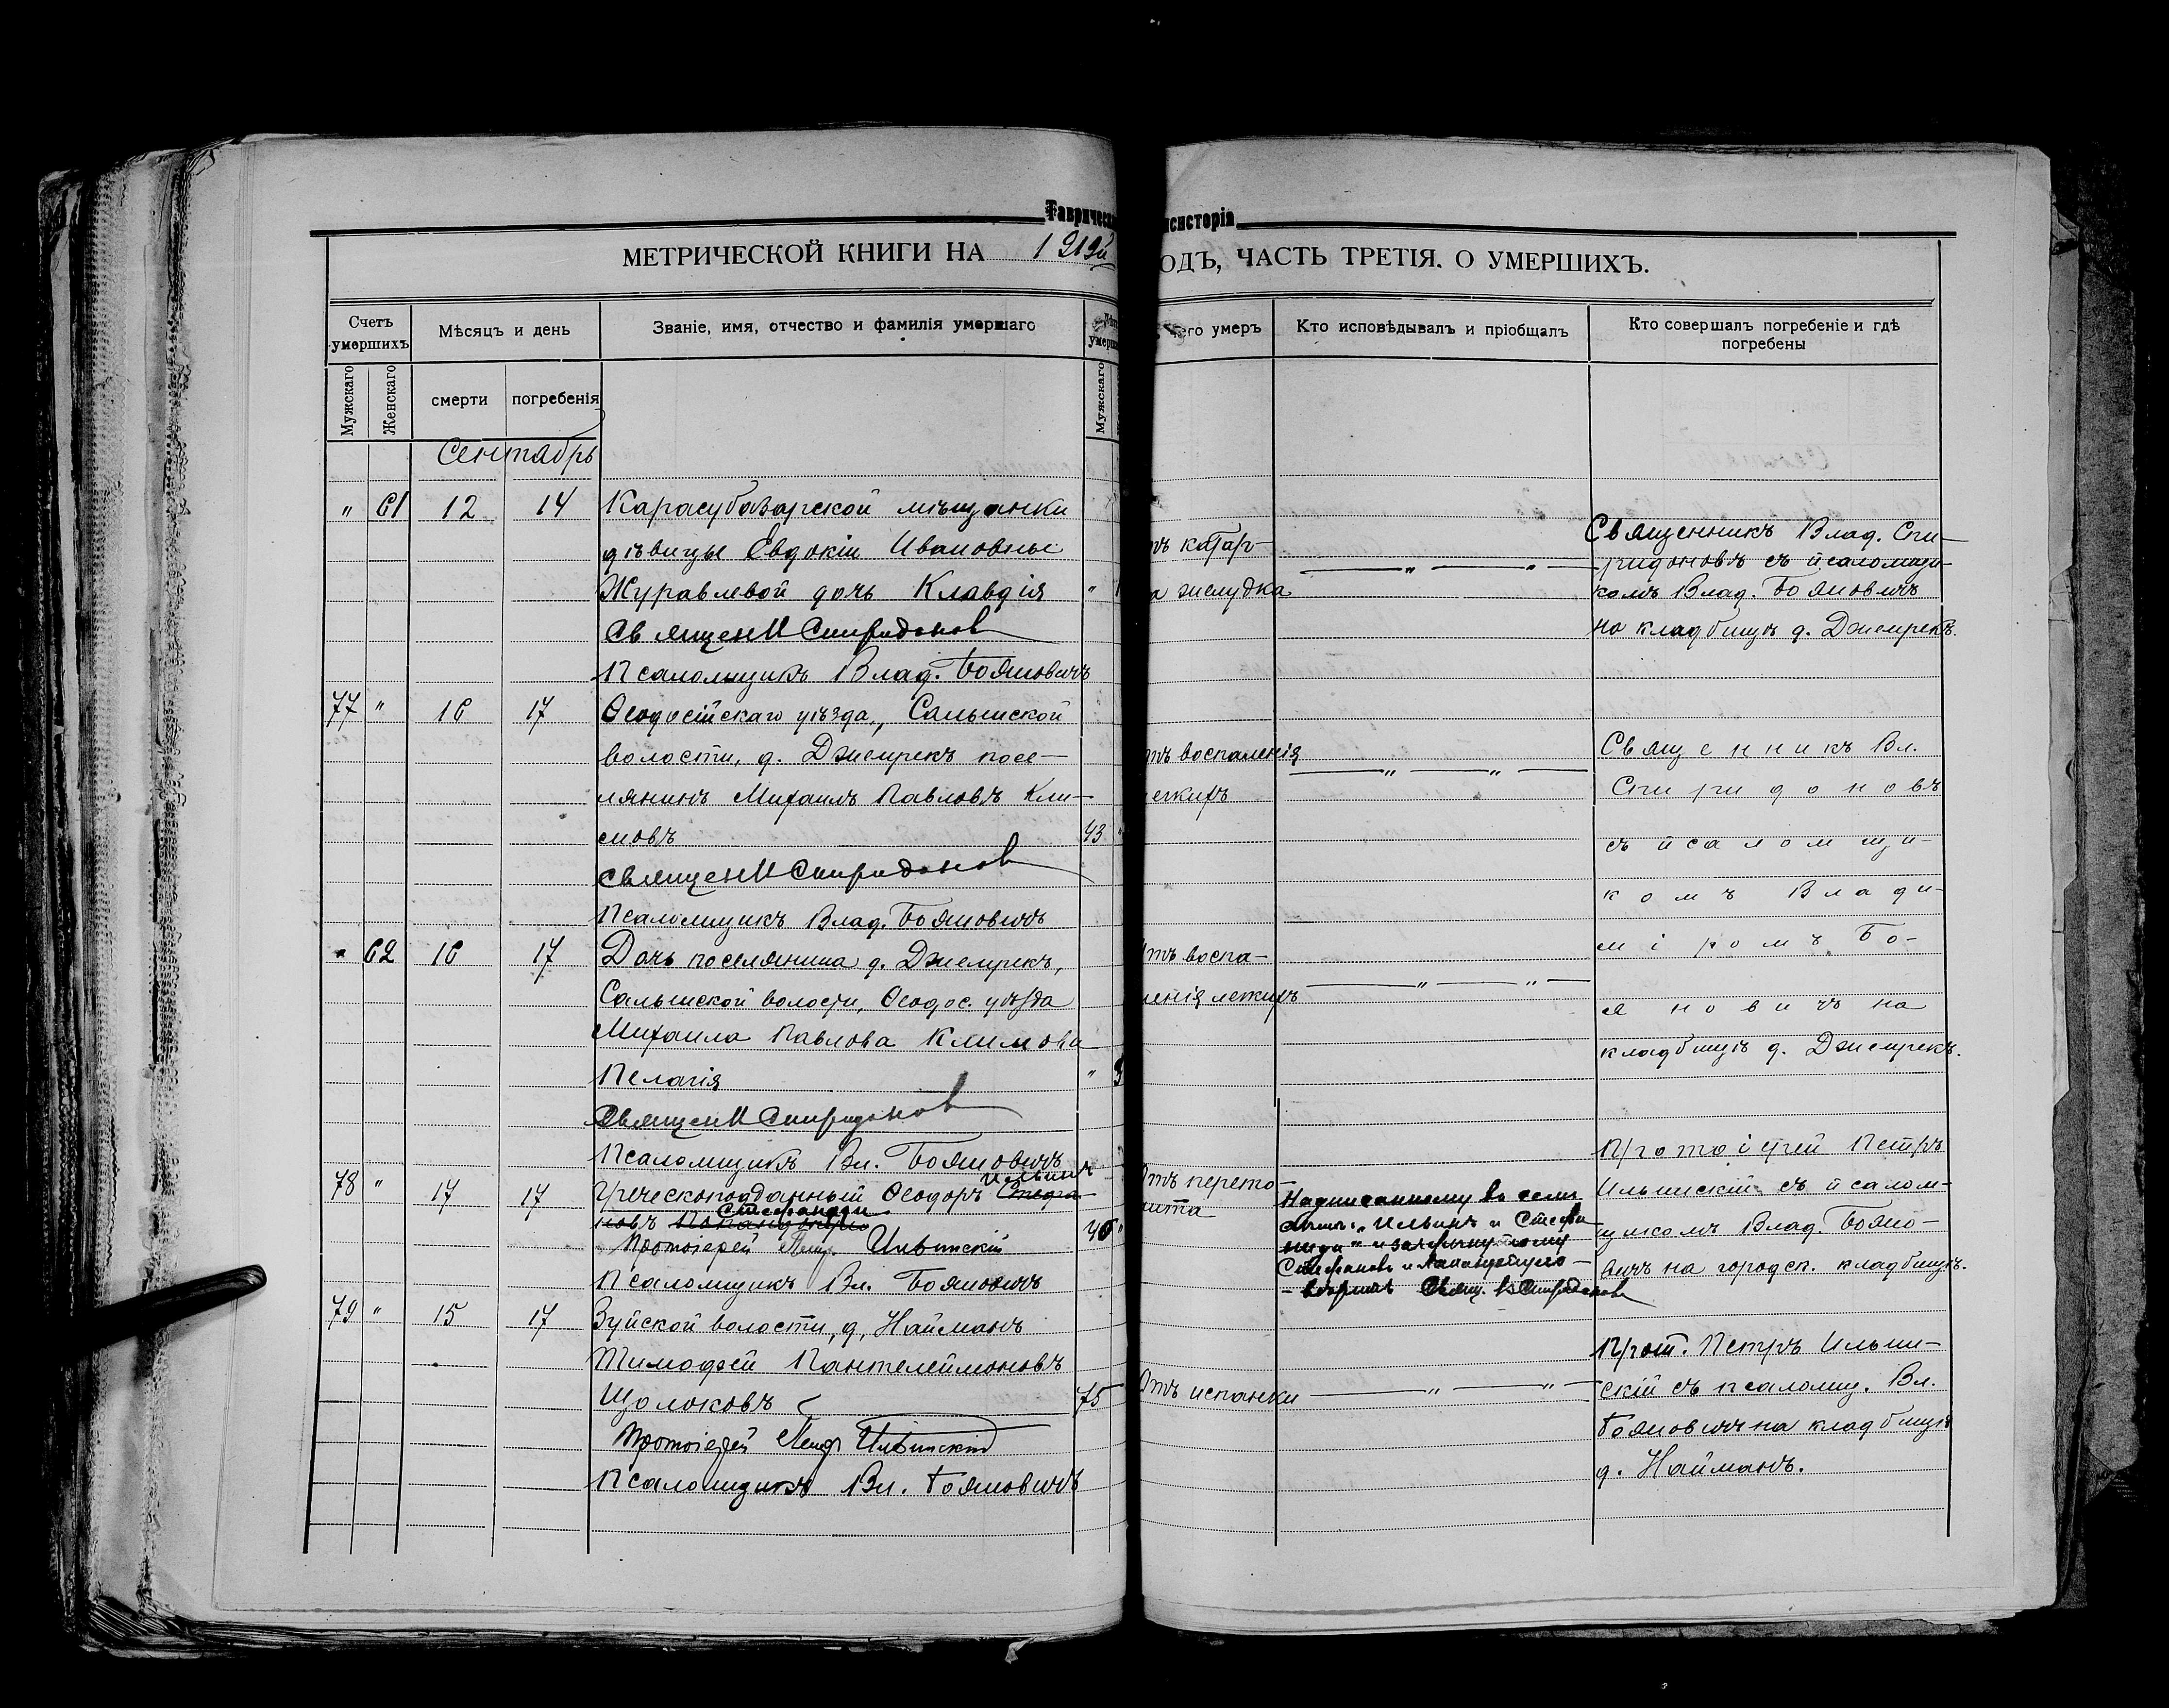 Таврическ
нсисторія
МЕТРИЧЕСКОЙ КНИГИ НА 1919й
ОДЪ, ЧАСТЬ ТРЕТІЯ. О УМЕРШИХЪ.
Счетъ умершихъ
Мѣсяцъ и день
Званіе, имя, отчество и фамилія умершаго
Лѣт
умерш
чего умеръ
Кто исповѣдывалъ и пріобщалъ
Кто совершалъ погребеніе и гдѣ
погребены
Мужскаго
Женскаго
смерти
погребенія
Мужскаго
Сентябрь
" 61 12 14 Карасубазарской мѣщанки
дѣвицы Евдокіи Ивановны
Журавлевой дочь Клавдія "
Священн Спиридонов
Псаломщикъ Влад. Бояновичъ
тъ катар-
а желудка
Священникъ Влад. Спи-
ридоновъ съ псаломщи-
комъ Влад. Бояновичъ
на кладбищѣ д. Джемрекъ.
77 " 16 17 Ѳеодосійскаго уѣзда, Салынской
волости, д. Джемрекъ посе-
лянинъ Михаилъ Павловъ Кли-
мовъ 43
Священн Спиридонов
Псаломщикъ Влад. Бояновичъ
тъ воспаленія
егкихъ
Священникъ Вл.
Спиридоновъ
съ псаломщи-
комъ Влади-
міромъ Бо-
яновичъ на
кладбищѣ д. Джемрекъ.
" 62 16 17 Дочь поселянина д. Джемрекъ,
Салынской волости, Ѳеодос. уѣзда
Михаила Павлова Климова
Пелагія "
Священн Спиридонов
Псаломщикъ Вл. Бояновичъ
тъ воспа-
ленія легкихъ
78 " 17 17 Греческоподданный Ѳеодоръ Стефа-
Ильинъ
новъ
Стефаниди
46 "
Протоіерей Петр Ильинскій
Псаломщикъ Вл. Бояновичъ
Отъ перито-
нита
Надписанному въ семъ
"Ильинъ и Стефа
ниди" и зачеркнутому
Стефановъ и
- вѣрить Свящ. В Спиридонов
Протоіерей Петръ
Ильинскій съ псалом-
щикомъ Влад. Бояно-
вичъ на городск. кладбищѣ.
79 " 15 17 Зуйской волости, д, Найманъ
Тимофей Пантелеймоновъ
Щолоковъ 75
Протоіерей Петр Ильинскій
Псаломщикъ Вл. Бояновичъ
Отъ испанки
Прот. Петръ Ильин-
скій съ псаломщ. Вл.
Бояновичъ на кладбищѣ
д. Найманъ.